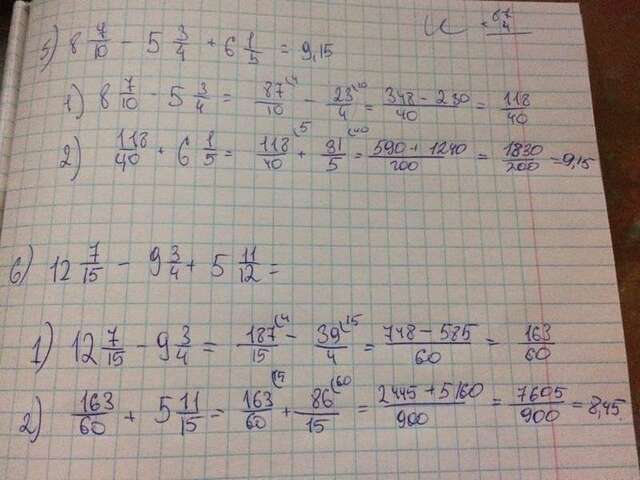 5) 8 7/10 - 5 3/4 + 6 1/5 = 9,15
1) 8 7/10 - 5 3/4 = 87/10 - 23/4 = 348-230/40 = 118/40
2) 118/40 + 6 1/5 = 118/40 + 31/5 = 590+1240/200 = 1830/200 = 9,15
6) 12 7/15 - 9 3/4 + 5 11/12 =
1) 12 7/15 - 9 3/4 = 187/15 - 39/4 = 748-585/60 = 163/60
2) 163/60 + 5 11/15 = 163/60 + 86/15 = 2445+5160/900 = 7605/900 = 8,45